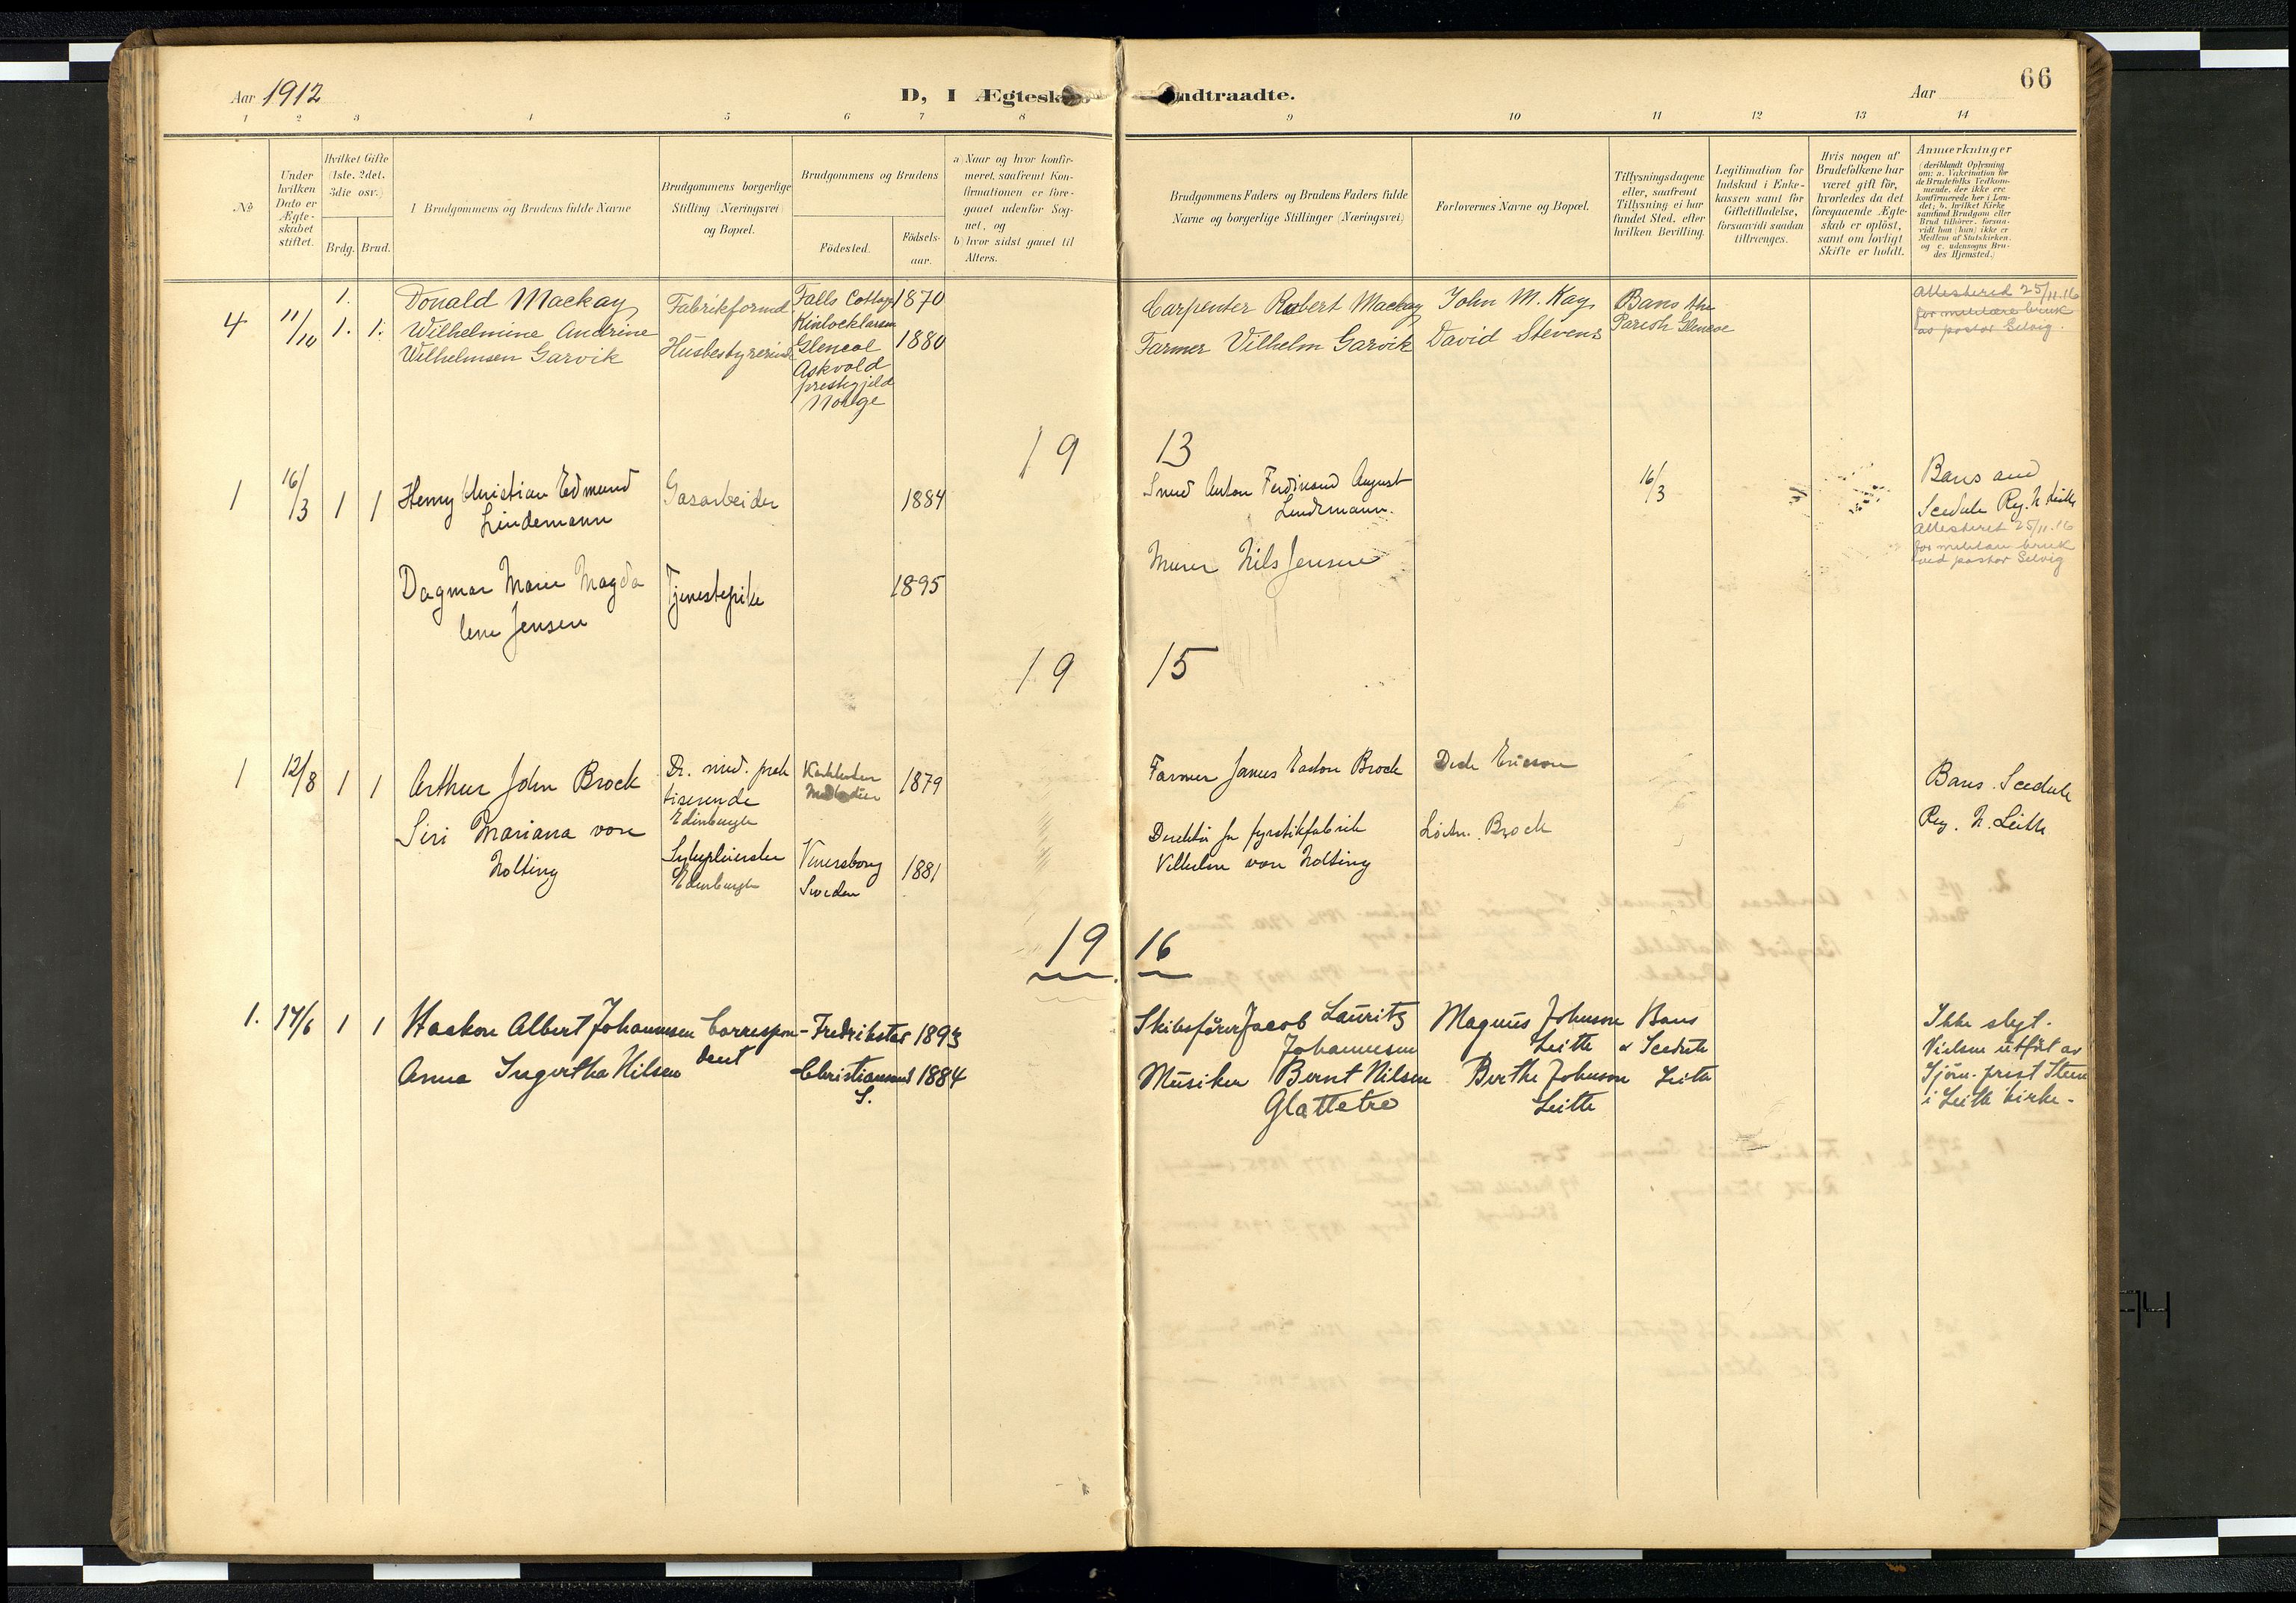 Aar 1912
D, I Ægtesk
ndtraadte.
Aar
66
1 2 3 4 5 6 7 8 9 10 11 12 13 14
No
Under hvilken Dato er Ægte-skabet stiftet.
Hvilket Gifte (1ste, 2det, 3die osv.)
Brdg. Brud.
Brudgommens og Brudens fulde Navne
Brudgommens borgerlige Stilling (Næringsvei) og Bopæl.
Brudgommens og Brudens
Födested.
Födsels-aar.
a) Naar og hvor konfir-
meret, saafremt Kon-
firmationen er fore-
gaaet udenfor Sog-
net, og
b) hvor sidst gaaet til
Alters.
Brudgommens Faders og Brudens Faders fulde
Navne og borgerlige Stillinger (Næringsvei)
Forlovernes Navne og Bopæl.
Tillysningsdagene
eller, saafremt
Tillysning ei har
fundet Sted, efter
hvilken Bevilling.
Legitimation for
Indskud i Enke-
kassen samt for
Giftetilladelse,
forsaavidt saadan
tiltrænges.
Hvis nogen af
Brudefolkene har
været gift för,
hvorledes da det
foregaaende Ægte-
skab er oplöst,
samt om lovligt
Skifte er holdt.
Anmærkninger
(deriblandt Oplysning
om: a. Vakcination för
de Brudefolks Vedkom-
mende, der ikke ere
konfirmerede her i Lan-
det; b. hvilket Kirke
samfund Brudgom eller
Brud tilhörer, forsaa-
vidt han (hun) ikke er
Medlem af Statskirken,
og c. udensogns Bru-
des Hjemsted.)
4 11/10 1. 1. 1.
Donald Mackay
Wilhelmine Andrine
Wilhelmsen Garvik
Fabrikformd.
Husbestyrerinde
Falls Cottage
Glencoe
Askvold
prestegjeld
Norge
1870
1880
Carpenter Robert Mackay
Farmer Vilhelm Garvik
John M. Kay
David Stevens
Bans the
Parish Glencoe
Attesteret 25/11.16
for militære bruk
av pastor Selvig.
19 13
1 16/3 1 1
Henry Christian Edmund
Lindemann
Gasarbeider
1884
Smed Anton Ferdinand August
Lindemann.
16/3
Bans and
Scedule Reg. N. Leith
Attesteret 25/11.16
for militære bruk
ved pastor Selvig
Dagmar Marie Magda
lene Jensen
Tjenestepike
1895
Murer Nils Jensen
19 15
1 12/8 1 1
Arthur John Brock
Siri Mariana von
Nolting
Dr. med. prak
tiserende
Edinburgh
Sykepleierske
Edinburgh
1879
Venersborg
Sweden
1881
Farmer James Easton Brock
Direktör for fyrstikfabrik
Vilhelm von Nolting
Ericson
Brock
Bans. Scedule
Reg. N. Leith
19 16
1. 17/6 1 1
Haakon Albert Johannesen
Anna Ingertha Nilsen
Correspon-
dent
Fredrikstad 1893
Christiansund 1884
S.
Skibsförer Jacob Lauritz
Johannesen
Musiker Bernt Nilsen
Glattetre
Magnus Johnson
Leith
Berthe Johnson
Leith
Bans
& Scedule
Leith
Ikke slegt.
Vielsen utfört av
Sjöm. prest Steen
i Leith kirke.